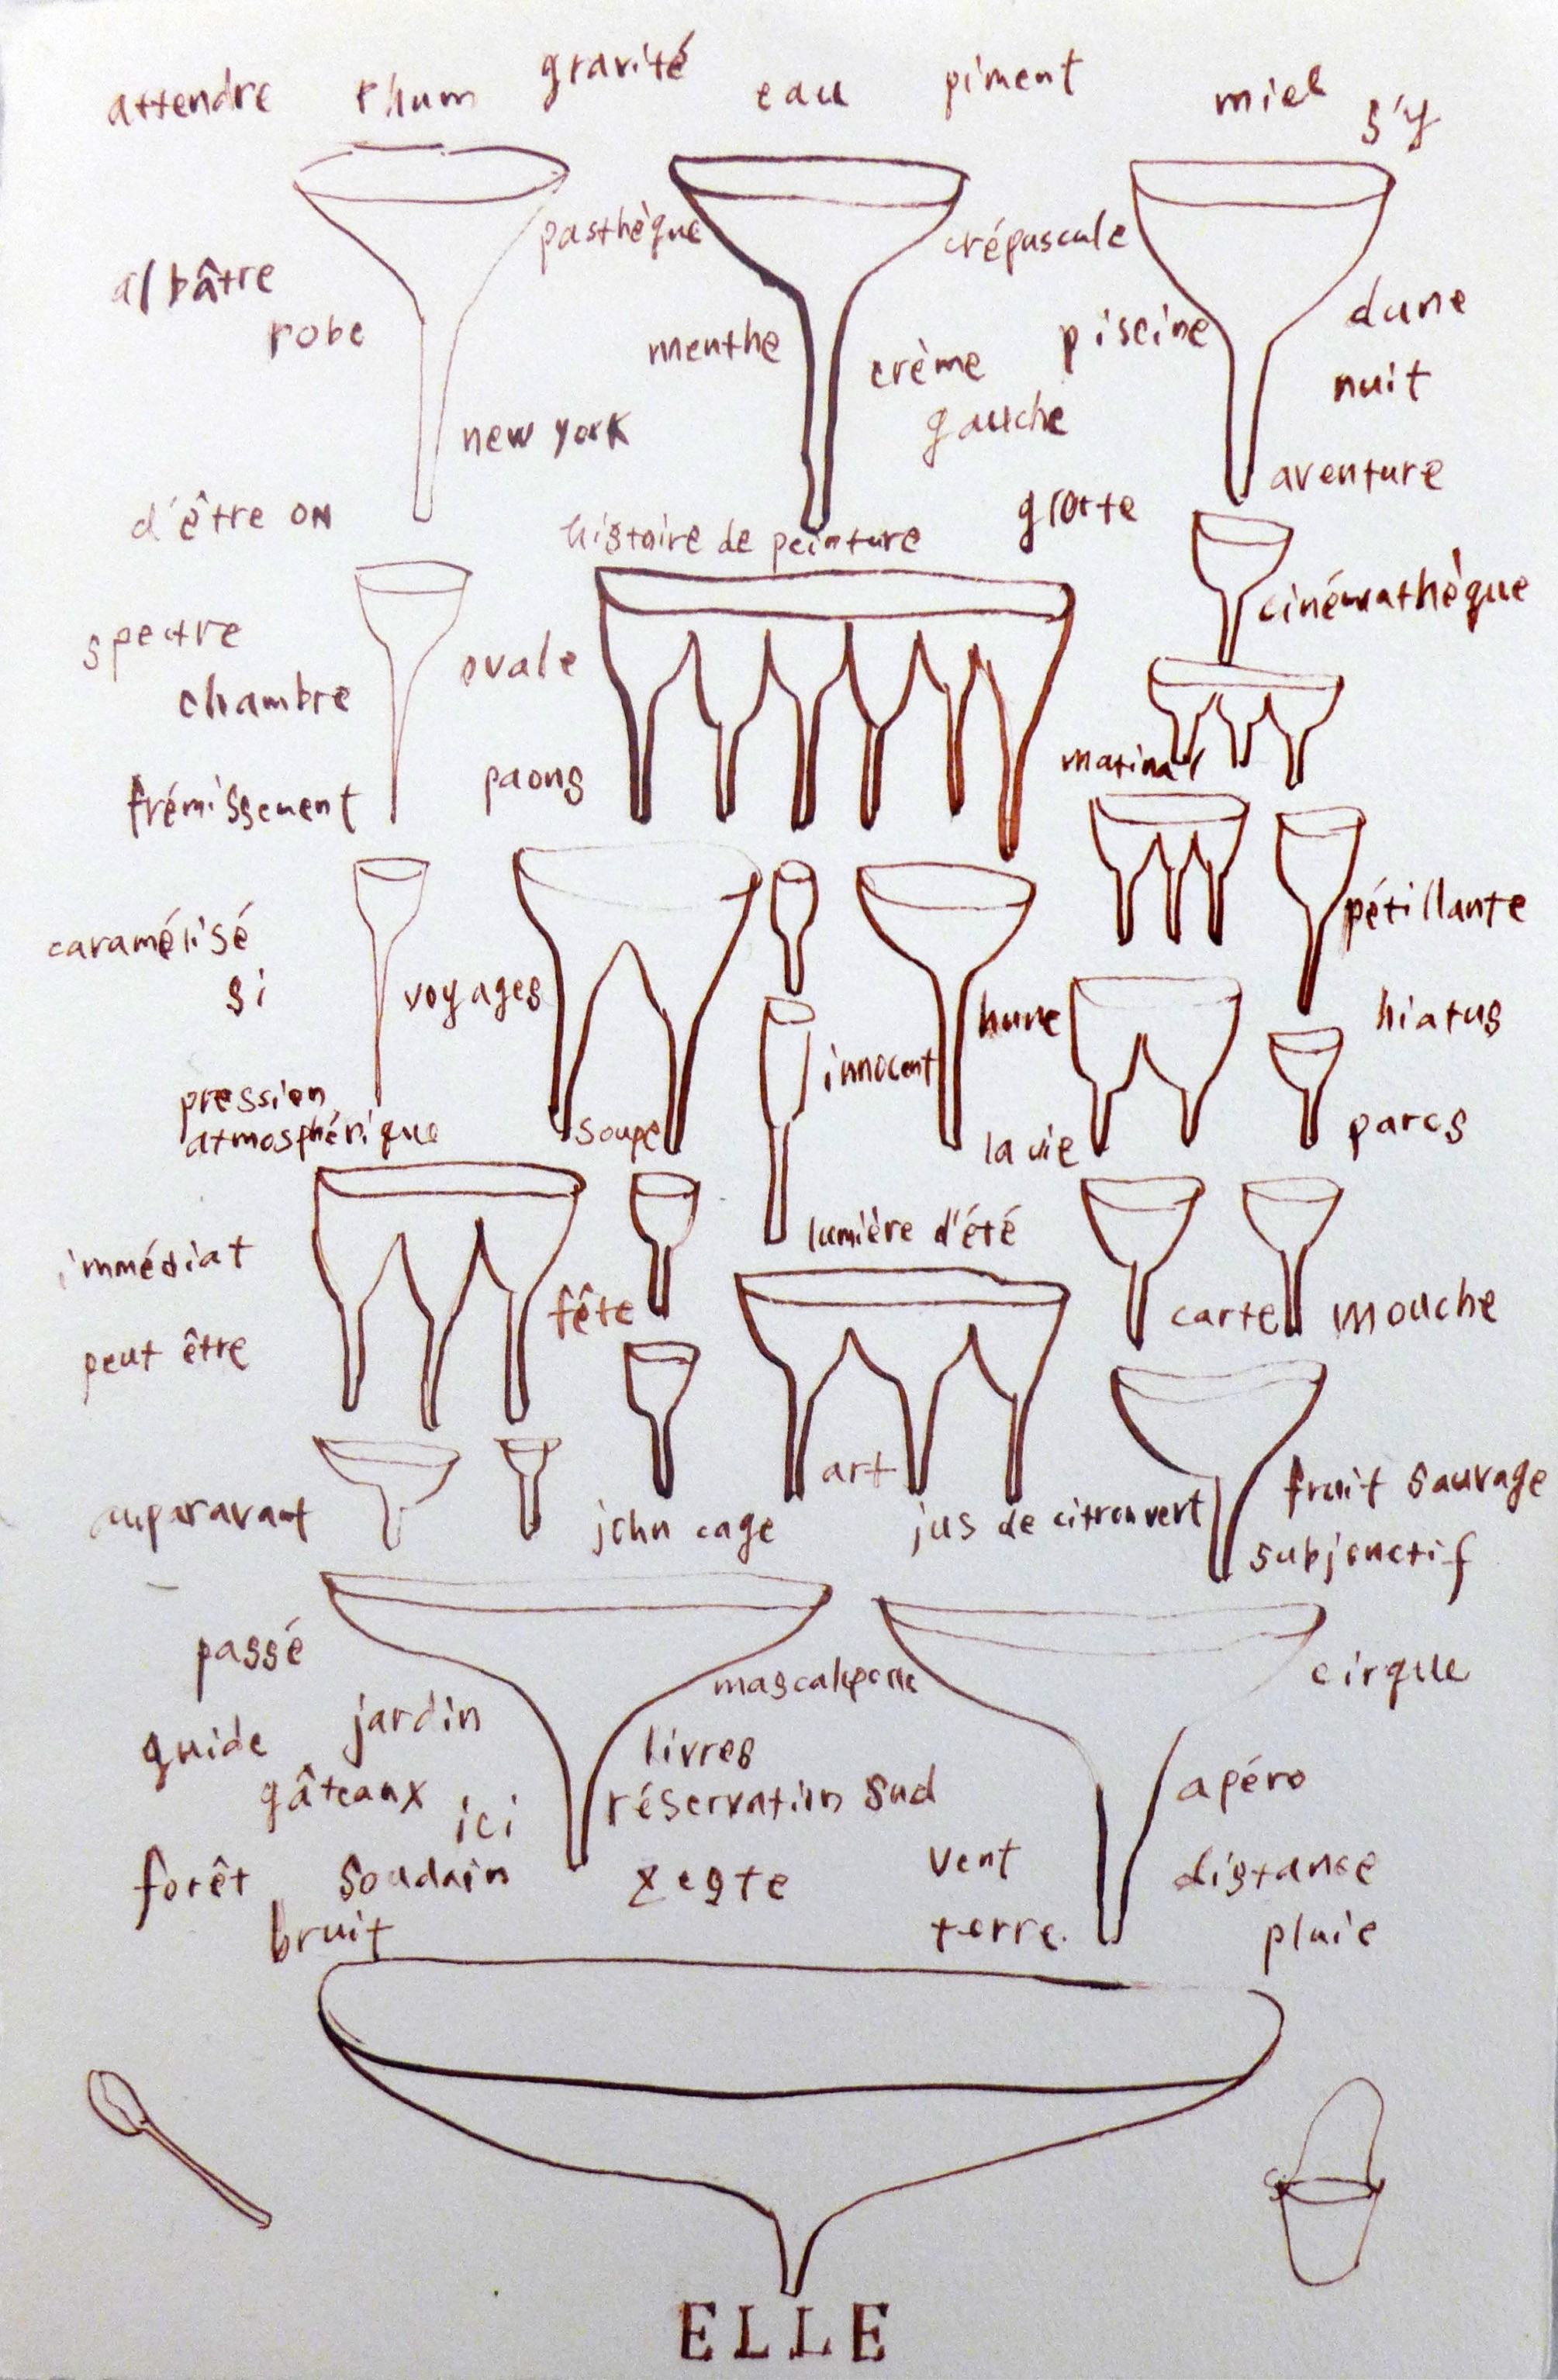 attendre rhum gravité eau piment miel s'y
pasthèque crépuscule
albâtre dune
robe menthe crème piscine nuit
new york gauche aventure
d'être ON histoire de peinture grotte
cinémathèque
spectre ovale
chambre
frémissement paons matinal
caramélisé pétillante
si voyages hune hiatus
pression innocent
atmosphérique soupe la vie parcs
immédiat lumière d'été
fête carte mouche
peut être
art fruit sauvage
auparavant john cage jus de citron vert
subjonctif
passé cirque
jardin
guide livres
gâteaux ici réservation sud apéro
forêt soudain zeste vent distance
bruit terre. pluie
ELLE